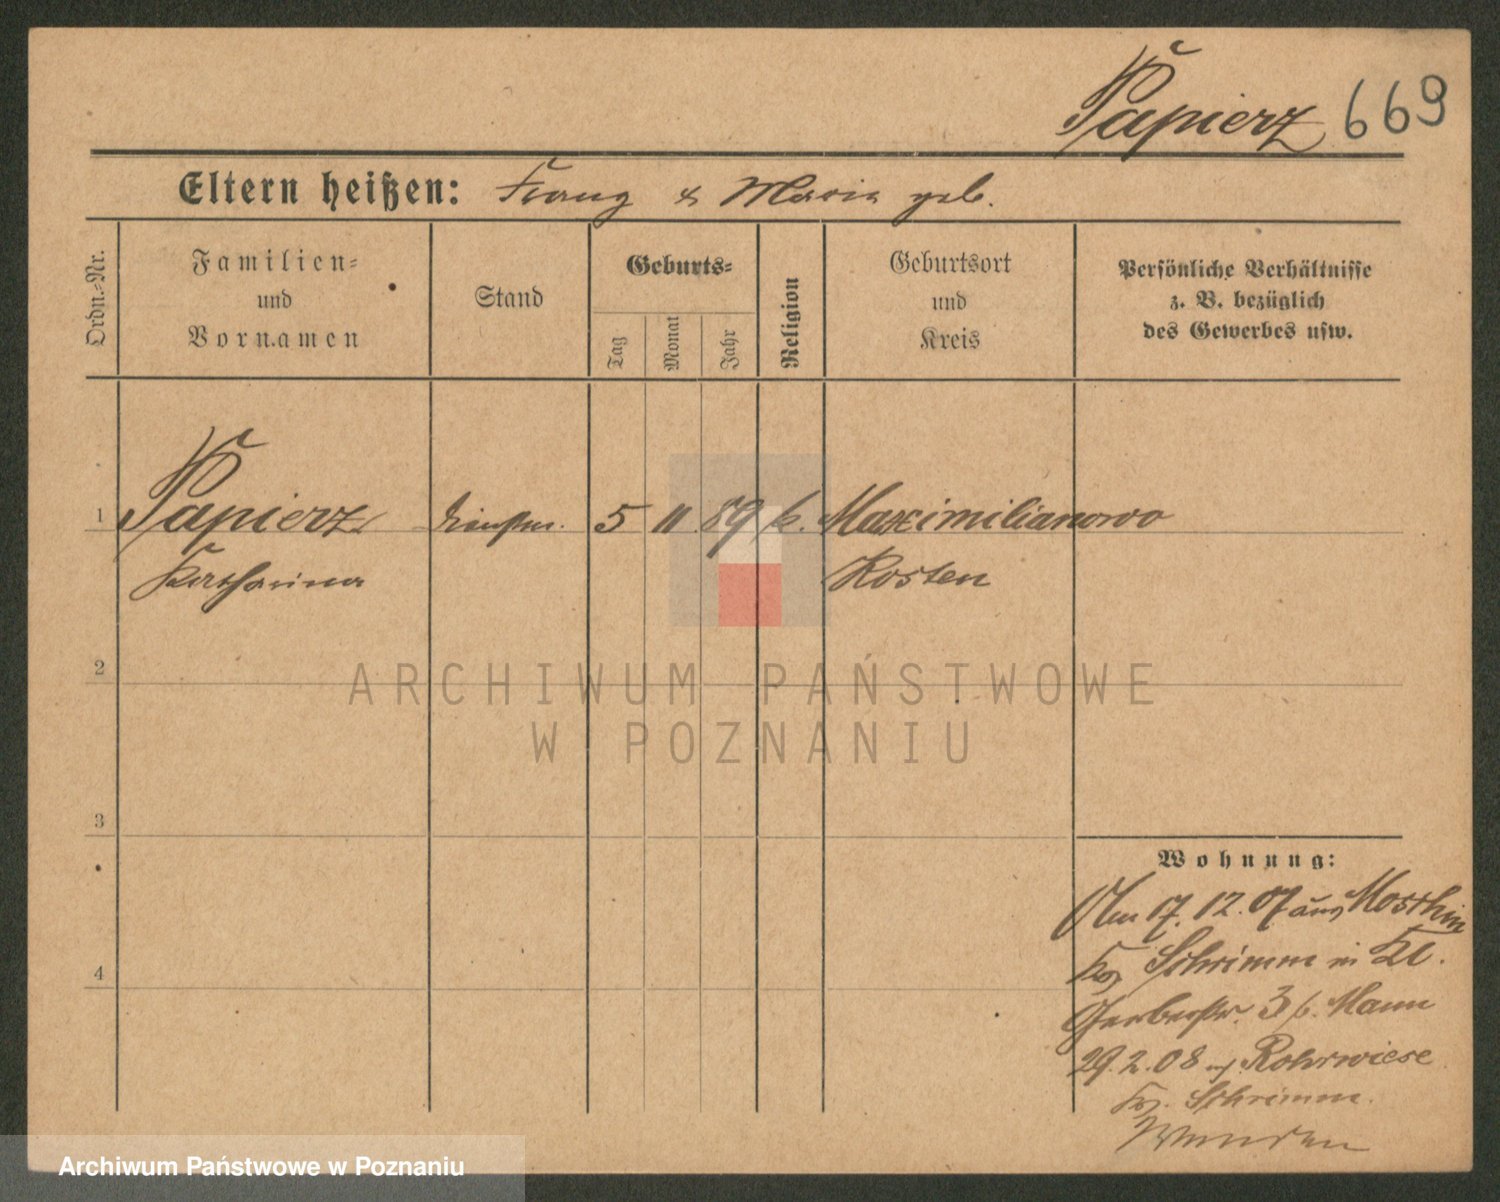 Papierz 669
Eltern heißen: Franz & Maria geb.
Ordn.-Nr.
Familien-
und
Vornamen
Stand
Geburts-
Tag
Monat
Jahr
Religion
Geburtsort
und
Kreis
Persönliche Verhältnisse
z. B. bezüglich
des Gewerbes usw.
1 Papierz Dienstm. 5 11 89 k. Maximilianowo
Katharina Kosten
2
ARCHIWUM PAŃSTWOWE
W POZNANIU
3
Wohnung:
17. 12. 07 aus
Schrimm in Kl.
4
Gerberstr. 3 b. Mann
29. 2. 08 n. Rohrwiese
Schrimm.
Archiwum Państwowe w Poznaniu